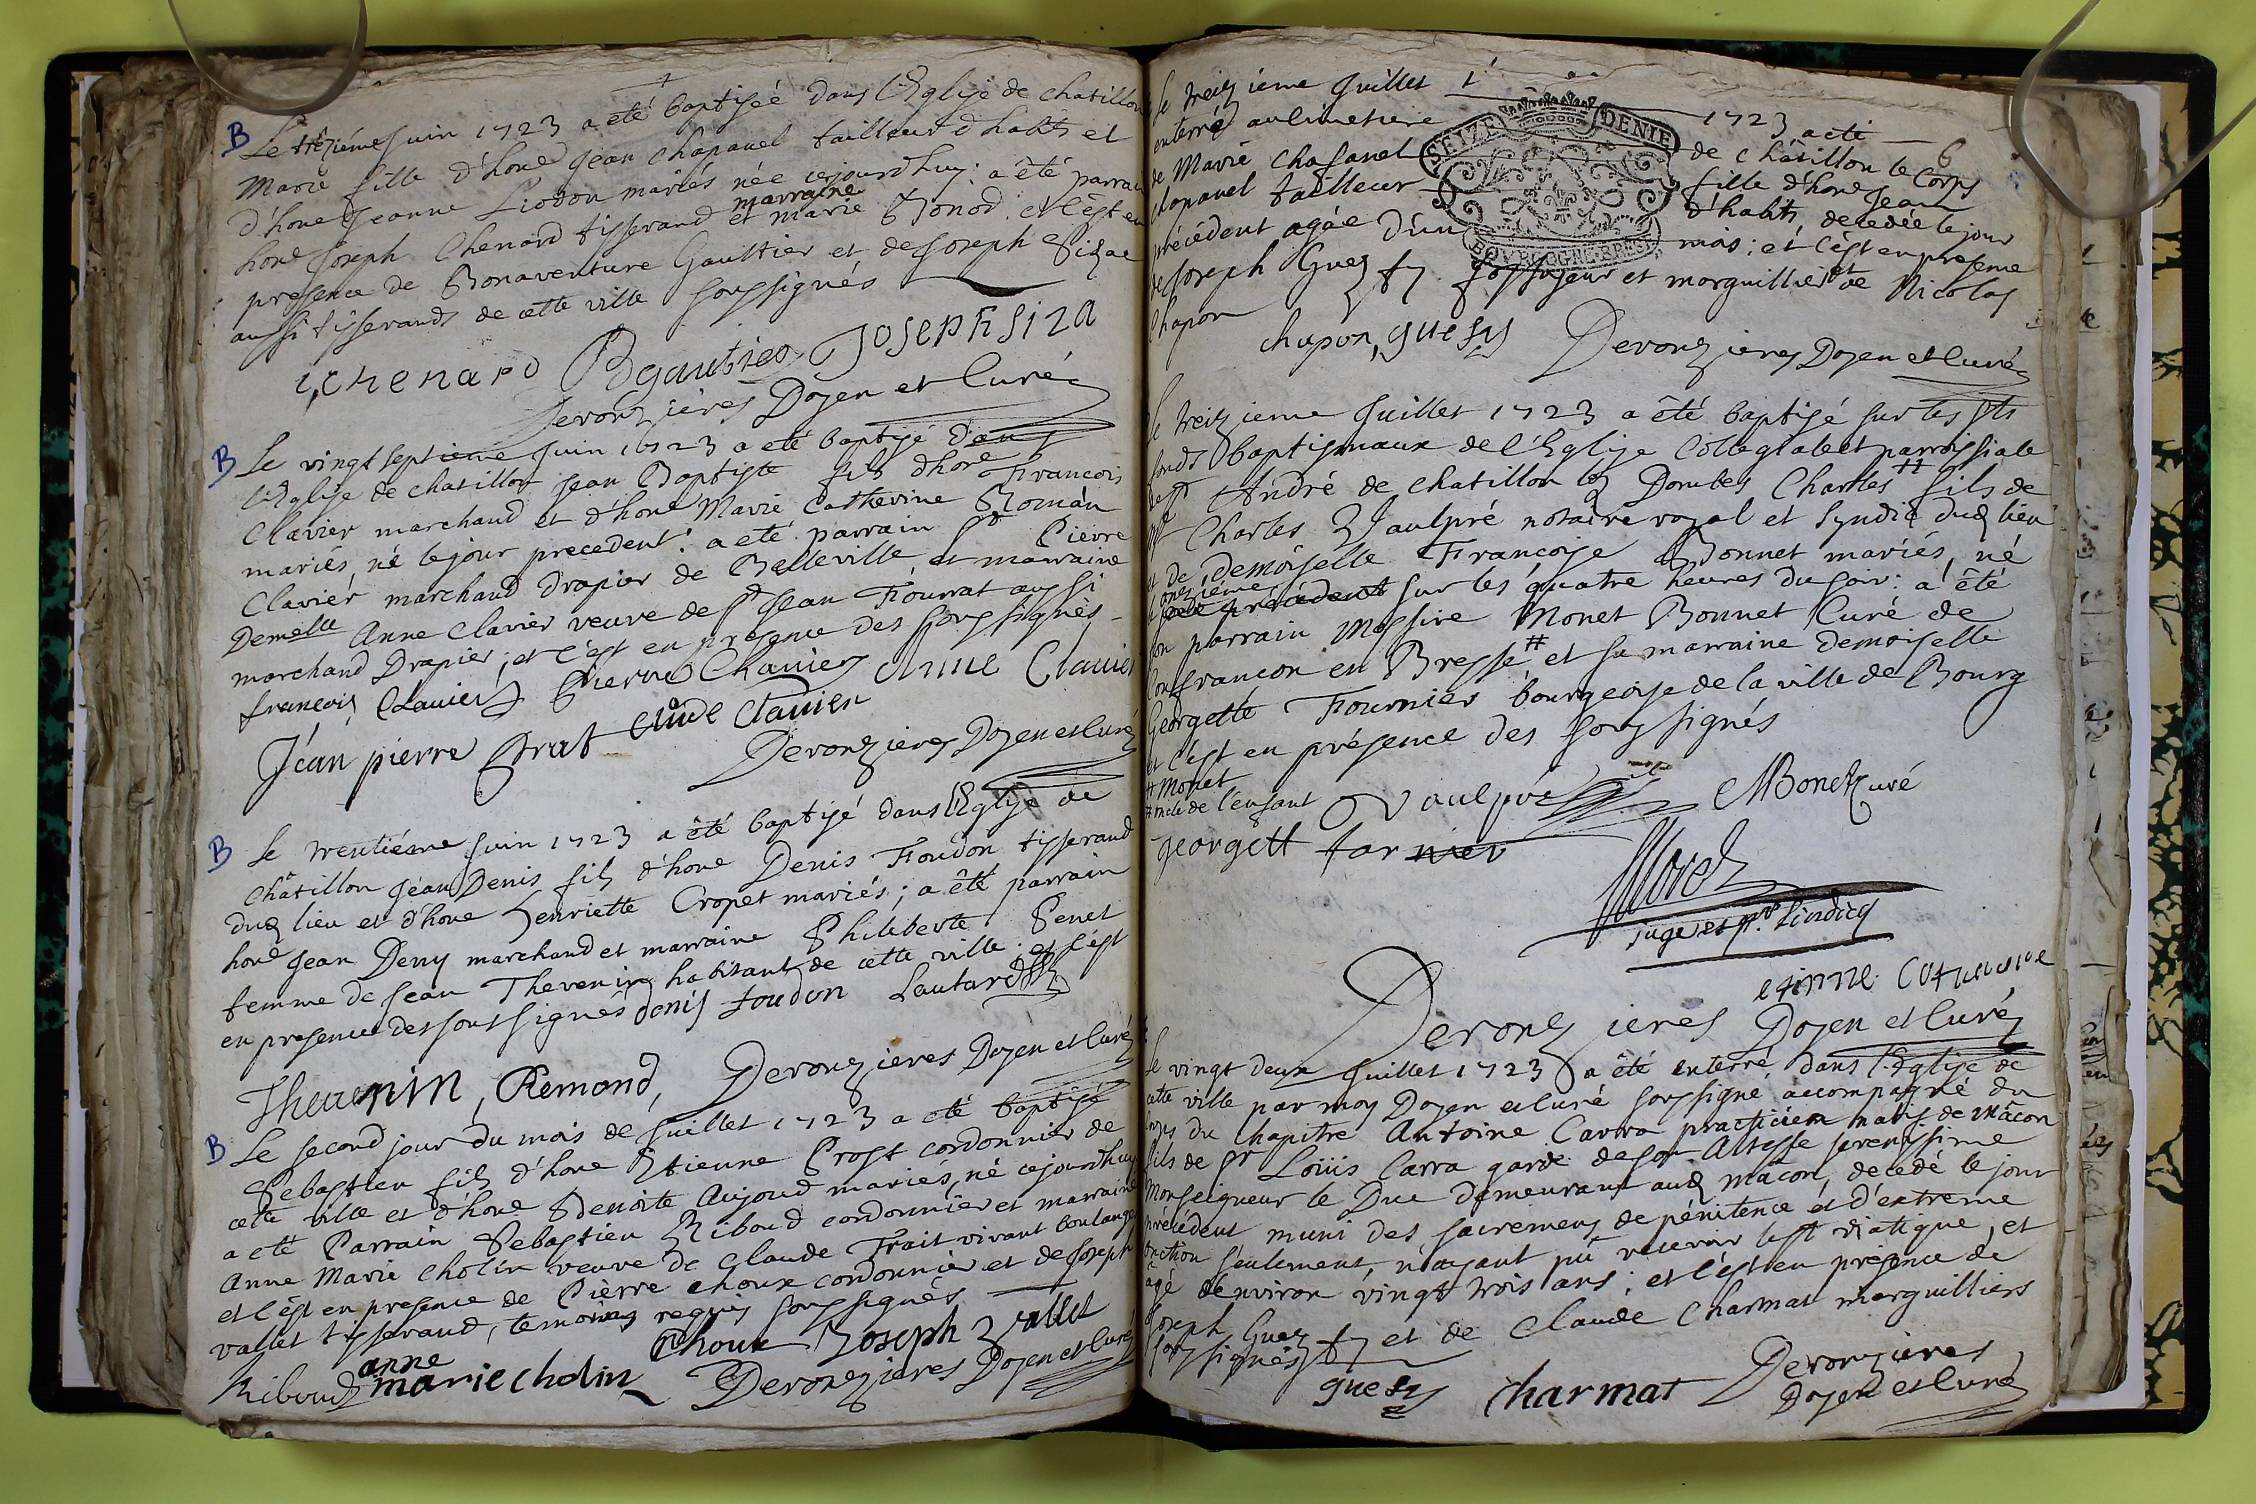 B Le trêziéme Juin 1723 a eté baptisée dans l'Eglise de chatillon
Marie fille d'hone Jean Chapanel tailleur d'habits et
d'hone Jeanne Liodon mariés née cejourd'huy: a été parrain
marraine
hone Joseph Chenard tisserand et marie Bonod. et c'est en
presence de Bonaventure Gaultier et de Joseph Sizae
aussi tisserands de cette ville soussignés
Chenard B gautier JOSEPH Siza
Deronzieres Doyen et Curé
B Le vingt septieme Juin 1723 a eté baptisé dans
l'Eglise de chatillon Jean Baptiste fils d'hone Francois
Clavier marchand et d'hone Marie Catherine Roman
mariés, né le jour precedent: a eté parrain Sr Pierre
Clavier marchand Drapier de Belleville, et marraine
Demelle Anne Clavier veuve de Sr Jean Fourrat aussi
marchand Drapier; et c'est en presence des soussignés
francois Clavier Pierre Clavier Anne Clavier
Jean pierre Prat Clude Clavier
Deronzieres Doyen et Curé
B Le trentiéme Juin 1723 a été baptisé dans l'Eglise de
châtillon Jean Denis fils d'hone Denis Foudon tisserand
dud lieu et d'hone Henriette Cropet mariés; a êté parrain
hone Jean Deny marchand et marraine Philiberte Penet
femme de Jean Thevenin habitant de cette ville. et c'est
en presence des soussignés denis foudon Lautard
Thevenin, Remond, Deronzieres Doyen et Curé
B Le second jour du mois de Juillet 1723 a eté baptisé
Sebastien fils d'hone Etienne Prost cordonnier de
cette ville et d'hone Benoite Aujoud mariés, né cejourd'huy
a eté Parrain Sebastien Riboud cordonnier et marraine
Anne Marie Cholin veuve de Claude Trait vivant boulanger
et c'êst en presence de Pierre choux cordonnier et de Joseph
vallet tisserand, temoins requis soussignés
Riboud anne marie cholin Choux Joseph vallet
Deronzieres Doyen et Curé
Le treizieme Juillet 1723 a eté
6
enterré au cimetiere de châtillon le Corps
de Marie Chapanel fille d'hone Jean
chapanel tailleur d'habits decedée le jour
précédent agée d'un mois: et c'êst en presence
de Joseph Guez fossoyeur et marguillier et de Nicolas
Chapon
SEIZE DENIE
BOURGOGNE-BRESSE
chapon, guesy Deronzieres Doyen et Curé
Le treizieme Juillet 1723 a êté baptisé sur les sts
fonds baptismaux de l'Eglise Collegiale et parroissiale
de st André de chatillon les Dombes Charles ++ fils de
Mr Charles Vaulpré notaire royal et syndic dud lieu
et de demoiselle Françoise Bonnet mariés, né
onzieme
le jour précédent sur les quatre heures du soir: a êté
son parrain Messire Monet Bonnet Curé de
Confrancon en Bresse # et sa marraine demoiselle
Georgette Fournier bourgeoise de la ville de Bourg
et c'est en présence des soussignés
++ Monet
# oncle de l'enfant Vaulpré MBonet Curé
georgett farnier
Morel
juge et pr. sindicq
etinne
Deronzieres Doyen et Curé
Le vingt deux Juillet 1723 a êté enterré dans l'Eglise de
cette ville par moy Doyen et Curé soussigné accompagné du
corps du chapitre Antoine Carra practicien natif de Mâcon
fils de sr Loüis Carra garde de son Altesse serenissime
Monseigneur le Duc demeurant aud mâcon, decedé le jour
précédent muni des sacremens de pénitence et d'extreme
onction seulement, n'ayant pû recevoir le st viatique, et
âgé d'environ vingt trois ans; et c'êst en présence de
Joseph Guez et de Claude Charmat marguilliers
soussignés
guesy Charmat Deronzieres
Doyen et Curé